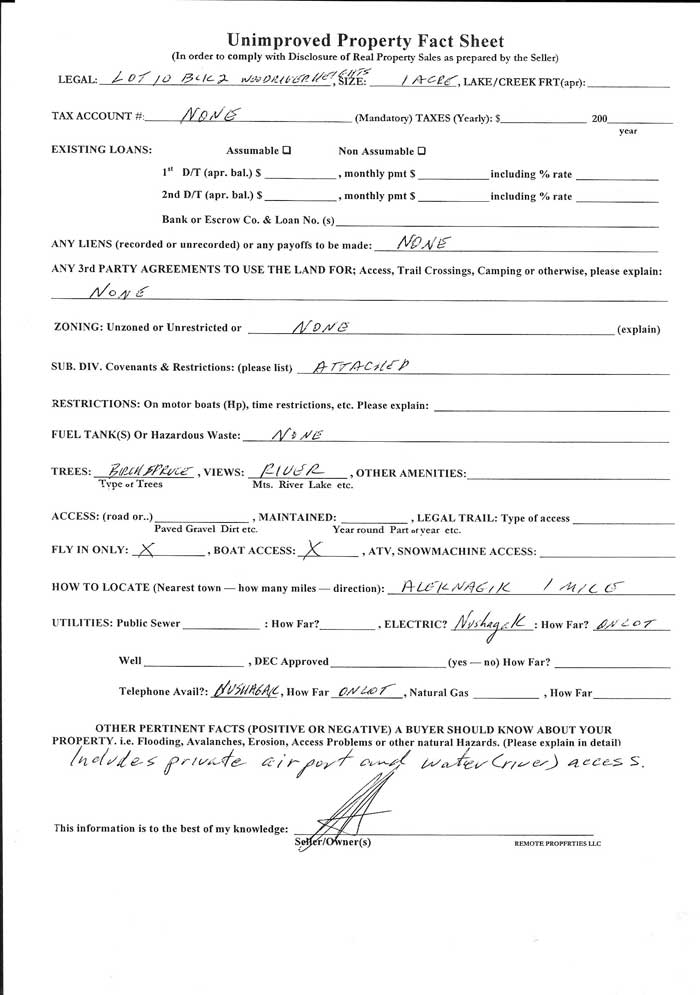 Unimproved Property Fact Sheet
(In order to comply with Disclosure of Real Property Sales as prepared by the Seller)
LEGAL: LOT 10 BLK 2 WOODRIVER HEIGHTS, SIZE: 1 ACRE, LAKE/CREEK FRT(apr):
TAX ACCOUNT #: NONE (Mandatory) TAXES (Yearly): $ 200
year
EXISTING LOANS: Assumable ❑ Non Assumable ❑
1st D/T (apr. bal.) $ , monthly pmt $ including % rate
2nd D/T (apr. bal.) $ , monthly pmt $ including % rate
Bank or Escrow Co. & Loan No. (s)
ANY LIENS (recorded or unrecorded) or any payoffs to be made: NONE
ANY 3rd PARTY AGREEMENTS TO USE THE LAND FOR; Access, Trail Crossings, Camping or otherwise, please explain:
NONE
ZONING: Unzoned or Unrestricted or NONE (explain)
SUB. DIV. Covenants & Restrictions: (please list) ATTACHED
RESTRICTIONS: On motor boats (Hp), time restrictions, etc. Please explain:
FUEL TANK(S) Or Hazardous Waste: NONE
TREES: BIRCH SPRUCE, VIEWS: RIVER, OTHER AMENITIES:
Type of Trees Mts. River Lake etc.
ACCESS: (road or..) , MAINTAINED: , LEGAL TRAIL: Type of access
Paved Gravel Dirt etc. Year round Part of year etc.
FLY IN ONLY: X , BOAT ACCESS: X , ATV, SNOWMACHINE ACCESS:
HOW TO LOCATE (Nearest town — how many miles — direction): ALEKNAGIK 1 MILE
UTILITIES: Public Sewer : How Far? , ELECTRIC? Nushagak : How Far? ON LOT
Well , DEC Approved (yes — no) How Far?
Telephone Avail?: NUSHAGAK, How Far ON LOT, Natural Gas , How Far
OTHER PERTINENT FACTS (POSITIVE OR NEGATIVE) A BUYER SHOULD KNOW ABOUT YOUR
PROPERTY. i.e. Flooding, Avalanches, Erosion, Access Problems or other natural Hazards. (Please explain in detail)
Includes private airport and water (river) access.
This information is to the best of my knowledge:
Seller/Owner(s)
REMOTE PROPERTIES LLC